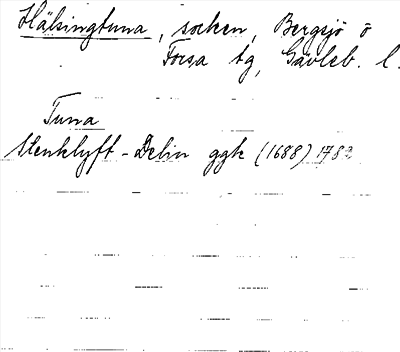 Hälsingtuna, socken, Bergsjö o
Forsa tg, Gävleb. l.
Tuna
Stenklyft - Delin ggk (1688) 1782